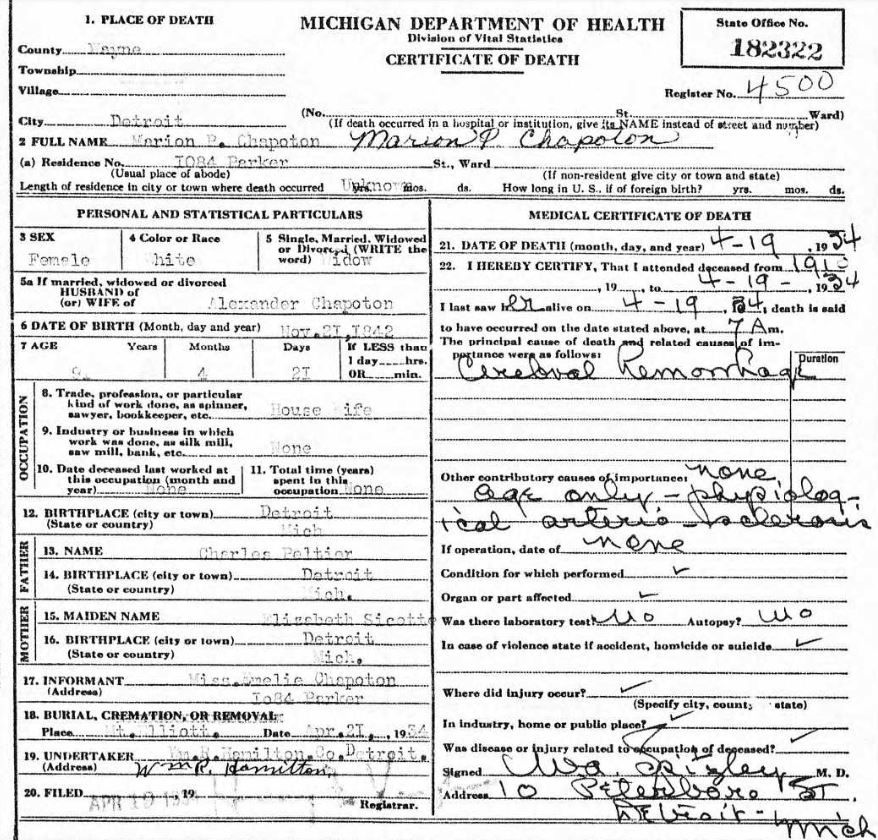 1. PLACE OF DEATH
MICHIGAN DEPARTMENT OF HEALTH
Division of Vital Statistics
CERTIFICATE OF DEATH
State Office No.
182322
County Wayne
Township
Village
Register No. 4500
City Detroit
(No. St. Ward)
(If death occurred in a hospital or institution, give its NAME instead of street and number)
2 FULL NAME Marion P. Chapoton Marion P. Chapoton
(a) Residence No. 1084 Parker St., Ward
(Usual place of abode) (If non-resident give city or town and state)
Length of residence in city or town where death occurred Unknown yrs. mos. ds. How long in U. S., if of foreign birth? yrs. mos. ds.
PERSONAL AND STATISTICAL PARTICULARS
3 SEX
Female
4 Color or Race
White
5 Single, Married, Widowed or Divorced (WRITE the word) Widow
5a If married, widowed or divorced
HUSBAND of
(or) WIFE of Alexander Chapoton
6 DATE OF BIRTH (Month, day and year) Nov. 21, 1842
7 AGE Years Months Days If LESS than
1 day hrs.
OR min.
9 4 21
OCCUPATION
8. Trade, profession, or particular
kind of work done, as spinner,
sawyer, bookkeeper, etc. House Wife
9. Industry or business in which
work was done, as silk mill,
saw mill, bank, etc. None
10. Date deceased last worked at
this occupation (month and
year) None
11. Total time (years)
spent in this
occupation None
12. BIRTHPLACE (city or town) Detroit
(State or country) Mich
FATHER
13. NAME Charles Peltier
14. BIRTHPLACE (city or town) Detroit
(State or country) Mich.
MOTHER
15. MAIDEN NAME Elizabeth Sicotte
16. BIRTHPLACE (city or town) Detroit
(State or country) Mich.
17. INFORMANT Miss. Emelie Chapoton
(Address) 1084 Parker
18. BURIAL, CREMATION, OR REMOVAL:
Place Mt. Elliott. Date Apr. 21, 1934
19. UNDERTAKER Wm. R. Hamilton. Co. Detroit.
(Address) Wm R. Hamilton
20. FILED APR 19 1934 19
Registrar.
MEDICAL CERTIFICATE OF DEATH
21. DATE OF DEATH (month, day, and year) 4-19, 1934
22. I HEREBY CERTIFY, That I attended deceased from
, 19 , to 4-19-, 1934
I last saw her alive on 4-19, 34, death is said
to have occurred on the date stated above, at 7 A m.
The principal cause of death and related causes of im-
portance were as follows:
Duration
Cerebral Hemorrhage
Other contributory causes of importance: none
age only - physiolog-
ical arterio-sclerosis
If operation, date of none
Condition for which performed ✓
Organ or part affected ✓
Was there laboratory test? No Autopsy? No
In case of violence state if accident, homicide or suicide ✓
Where did injury occur? ✓
(Specify city, county, state)
In industry, home or public place? ✓
Was disease or injury related to occupation of deceased? ✓
Signed M. D.
Address 10 Peterboro St.
Detroit - Mich